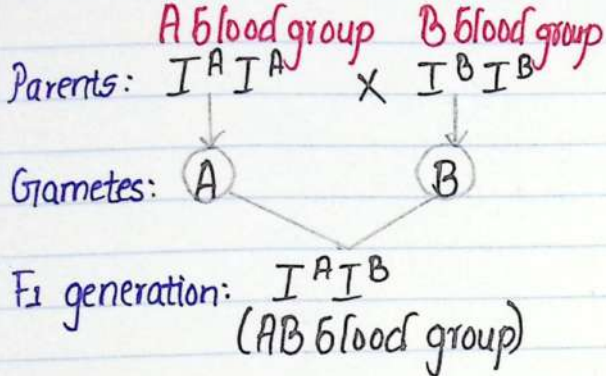 A blood group B blood group
Parents: I^A I^A X I^B I^B
Gametes: A B
F1 generation: I^A I^B
(AB blood group)